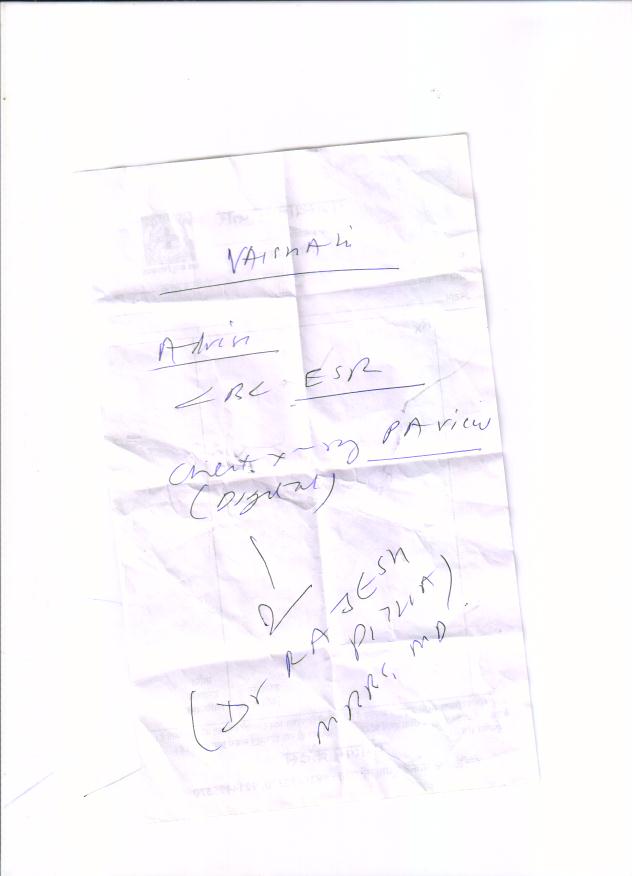 VAISHALI
Advise
CBC ESR
Chest x-ray PA view
(Digital)
(Dr RAJESH
MBBS, MD